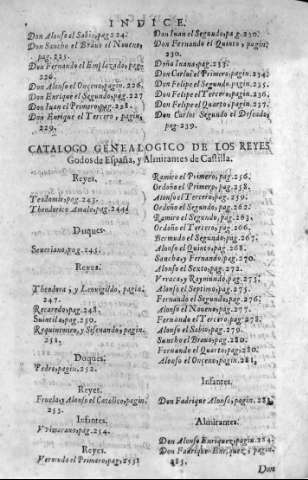 INDICE.
Don Alonso el Sabio, pag. 224.
Don Sancho el Bravo el Noveno,
pag. 225.
Don Fernando el Emplazado, pag.
226.
Don Alonso el Onceno, pagin. 226.
Don Enrique el Segundo, pag. 227
Don Iuan el Primero, pag. 228.
Don Enrique el Tercero, pagin.
229.
Don Iuan el Segundo, pag. 230.
Don Fernando el Quinto, pagin.
230.
Doña Iuana, pag. 233.
Don Carlos el Primero, pagin. 234.
Don Felipe el Segundo, pagin. 235.
Don Felipe el Tercero, pagin. 236.
Don Felipe el Quarto, pagin. 237.
Don Carlos Segundo el Deseado,
pag. 239.
CATALOGO GENEALOGICO DE LOS REYES
Godos de España, y Almirantes de Castilla.
Reyes.
Teudomir, pag. 243.
Theodorico Amalo, pag. 244.
Duques.
Severiano, pag. 245.
Reyes.
Theodora, y Leovigildo, pagin.
247.
Recaredo, pag. 248.
Suintila, pag. 250.
Requimiron, y Sisenando, pagin.
251.
Duques.
Pedro, pagin. 252.
Reyes.
Fruela, y Alonso el Catolico, pagin.
253.
Infantes.
Vimarano, pag. 254.
Reyes.
Vermudo el Primero, pag. 255.
Ramiro el Primero, pag. 256.
Ordoño el Primero, pag. 258.
Alonso el Tercero, pag. 259.
Ordoño el Segundo, pag. 262.
Ramiro el Segundo, pag. 263.
Ordoño el Tercero, pag. 266.
Bermudo el Segundo, pag. 267.
Alonso el Quinto, pag. 268.
Sancha, y Fernando, pag. 270.
Alonso el Sexto, pag. 272.
Vrraca, y Raymundo, pag. 273.
Alonso el Septimo, pag. 275.
Fernando el Segundo, pag. 276.
Alonso el Noveno, pag. 277.
Fernando el Tercero, pag. 278.
Alonso el Sabio, pag. 279.
Sancho el Bravo, pag. 280.
Fernando el Quarto, pag. 280.
Alonso el Onceno, pag. 281.
Infantes.
Don Fadrique Alonso, pag. 283.
Almirantes.
Don Alonso Enriquez, pagin. 284.
Don Fadrique Enriquez, pagin.
285.
Don